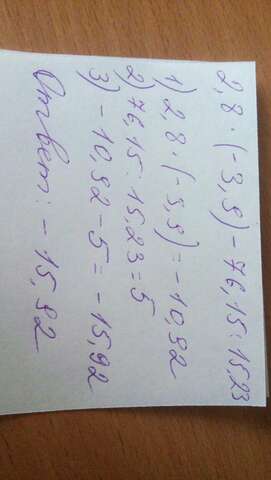 2,8 · (-3,9) - 76,15 : 15,23
1) 2,8 · (-3,9) = -10,92
2) 76,15 : 15,23 = 5
3) -10,92 - 5 = -15,92
Ответ: -15,92